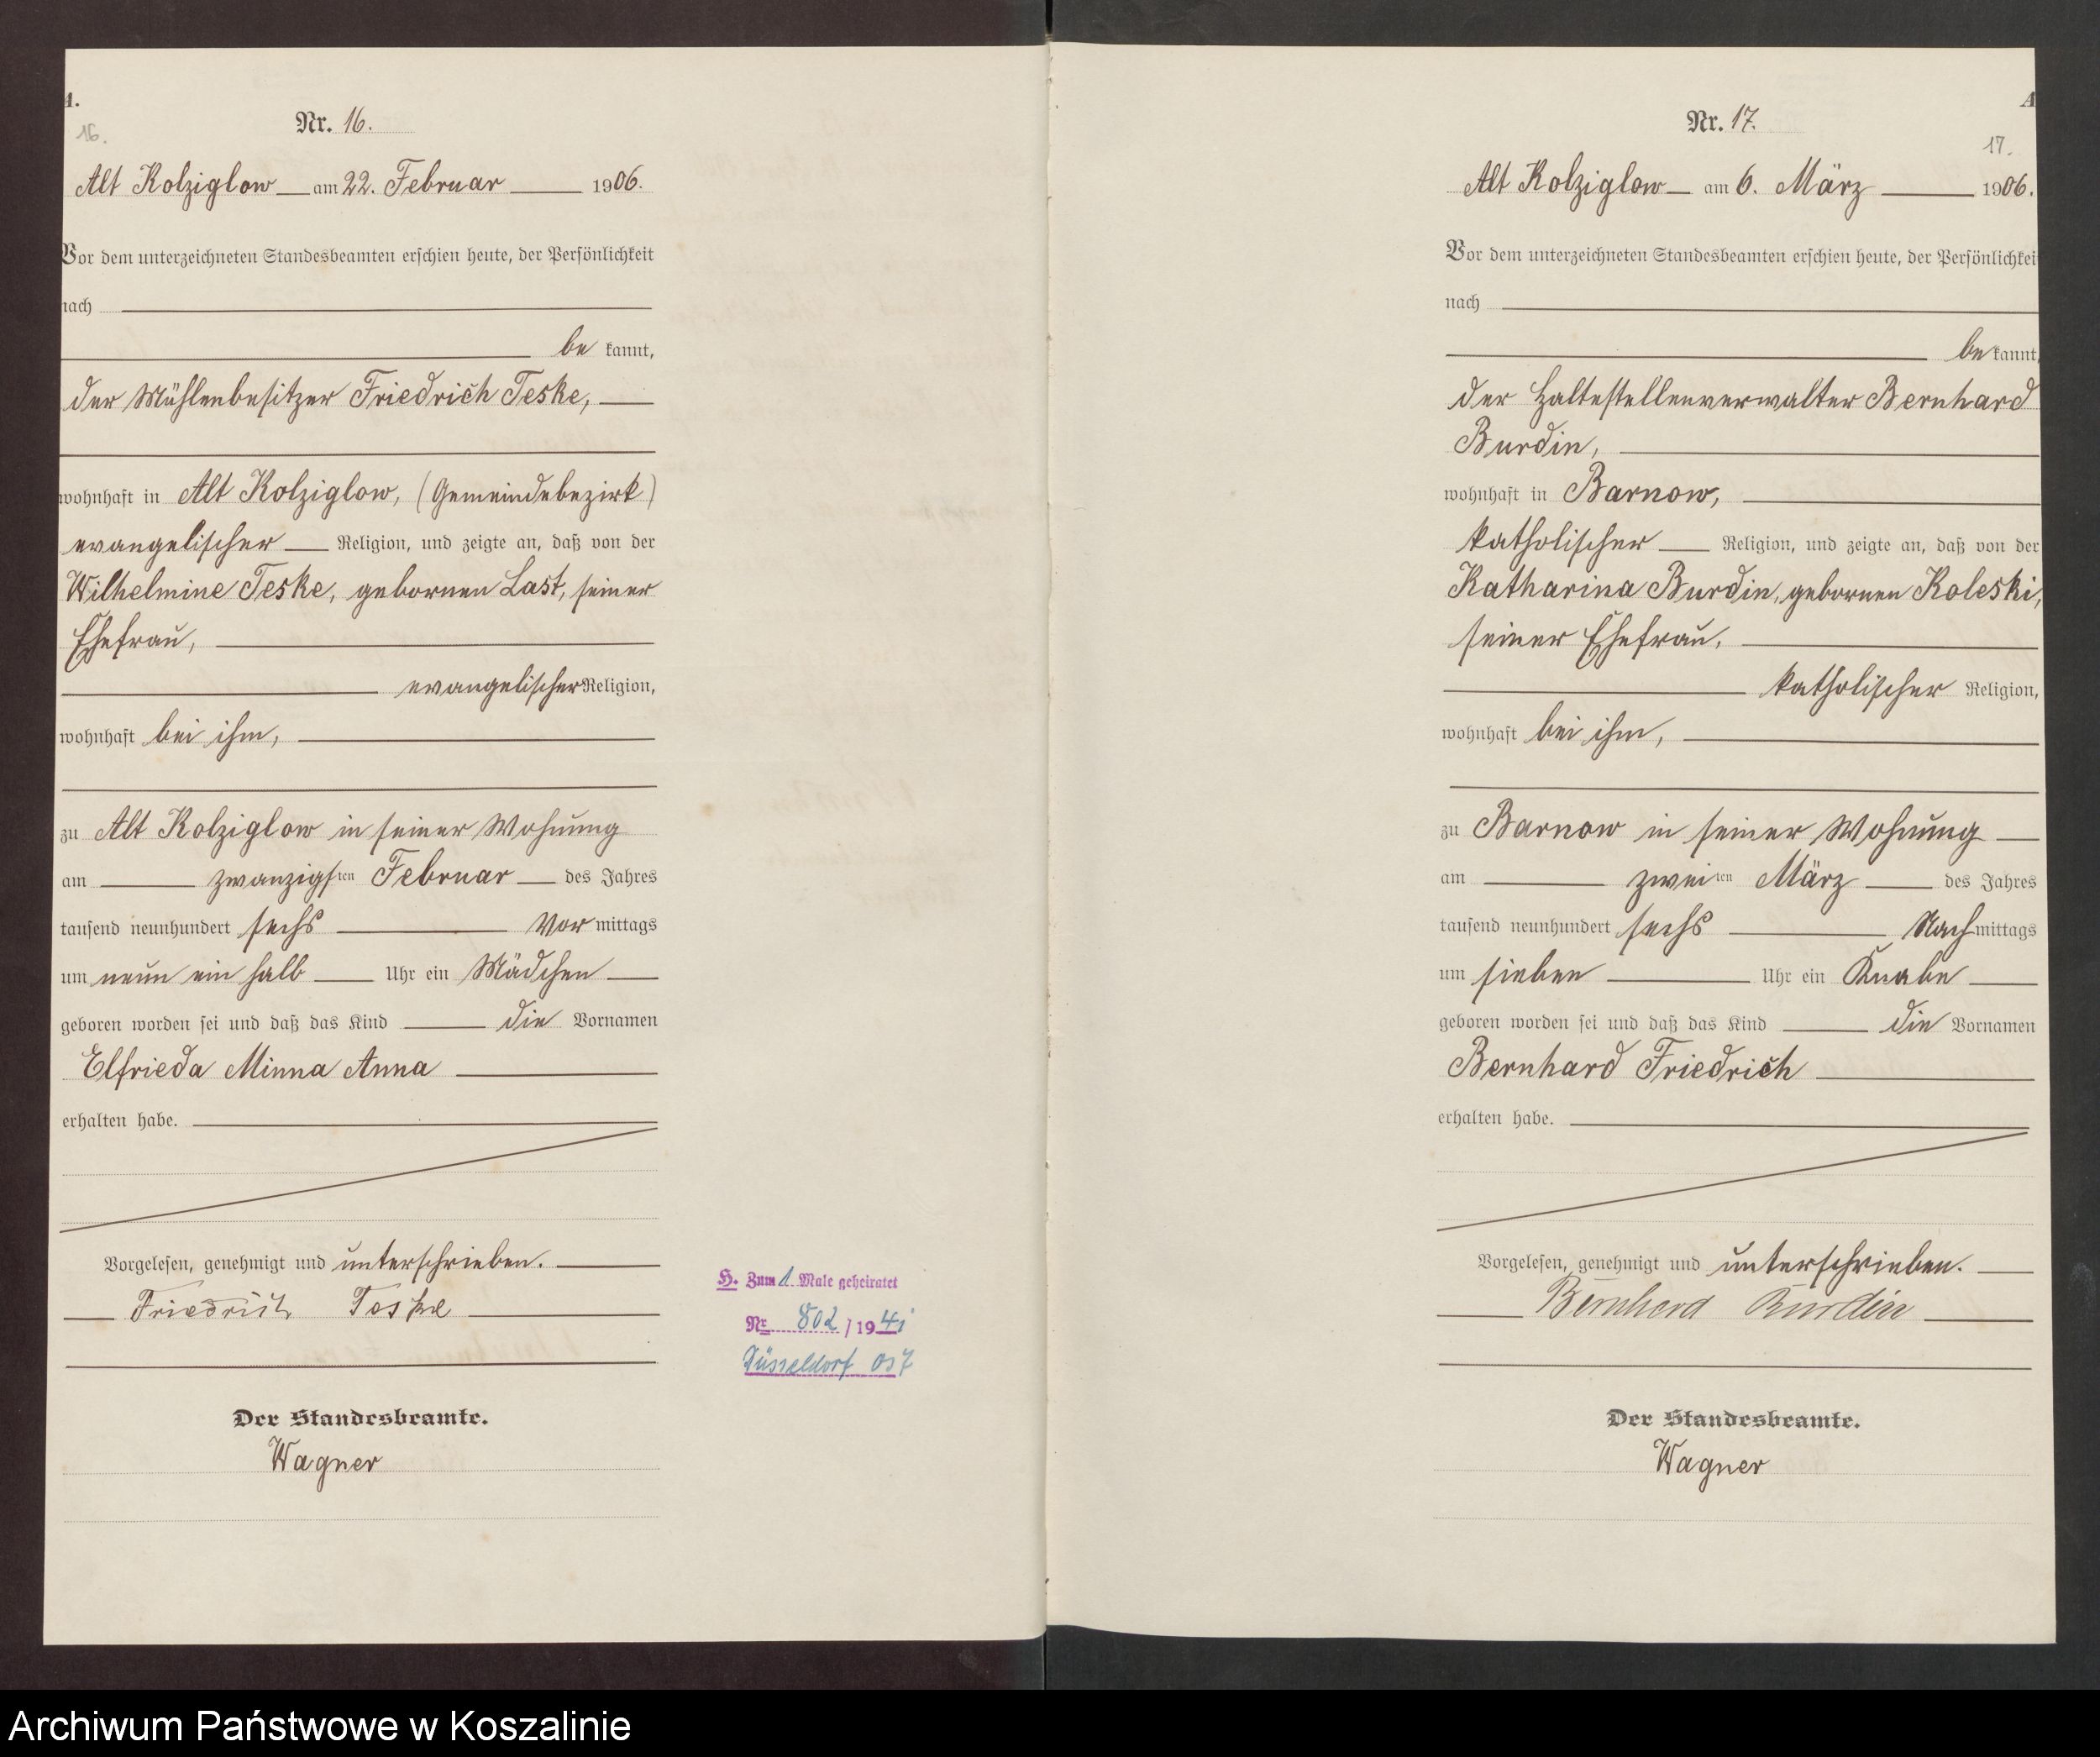 A.
16.
Nr. 16.
Alt Kolziglow am 22. Februar 1906.
Vor dem unterzeichneten Standesbeamten erschien heute, der Persönlichkeit
nach
be kannt,
der Mühlenbesitzer Friedrich Teske,
wohnhaft in Alt Kolziglow, (Gemeindebezirk)
evangelischer Religion, und zeigte an, daß von der
Wilhelmine Teske, gebornen Last, seiner
Ehefrau,
evangelischer Religion,
wohnhaft bei ihm,
zu Alt Kolziglow in seiner Wohnung
am zwanzigsten Februar des Jahres
tausend neunhundert sechs Vor mittags
um neun ein halb Uhr ein Mädchen
geboren worden sei und daß das Kind die Vornamen
Elfrieda Minna Anna
erhalten habe.
Vorgelesen, genehmigt und unterschrieben.
Friedrich Teske
Der Standesbeamte.
Wagner
H. Zum 1 Male geheiratet
Nr 802 / 1941
Düsseldorf Ost
A
17.
Nr. 17.
Alt Kolziglow am 6. März 1906.
Vor dem unterzeichneten Standesbeamten erschien heute, der Persönlichkei
nach
be kannt,
der Haltestellenverwalter Bernhard
Burdin,
wohnhaft in Barnow,
katholischer Religion, und zeigte an, daß von der
Katharina Burdin, gebornen Koleski,
seiner Ehefrau,
katholischer Religion,
wohnhaft bei ihm,
zu Barnow in seiner Wohnung
am zweiten März des Jahres
tausend neunhundert sechs Nach mittags
um sieben Uhr ein Knabe
geboren worden sei und daß das Kind die Vornamen
Bernhard Friedrich
erhalten habe.
Vorgelesen, genehmigt und unterschrieben.
Bernhard Burdin
Der Standesbeamte.
Wagner
Archiwum Państwowe w Koszalinie